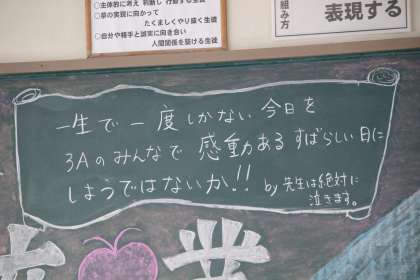 ○主体的に考え 判断し 行動する生徒
○夢の実現に向かって
たくましくやり抜く生徒
○自分や相手と誠実に向き合い
人間関係を築ける生徒
組み方
表現する
一生で一度しかない今日を
3Aのみんなで感動あるすばらしい日に
しようではないか!! by先生は絶対に
泣きます。
業